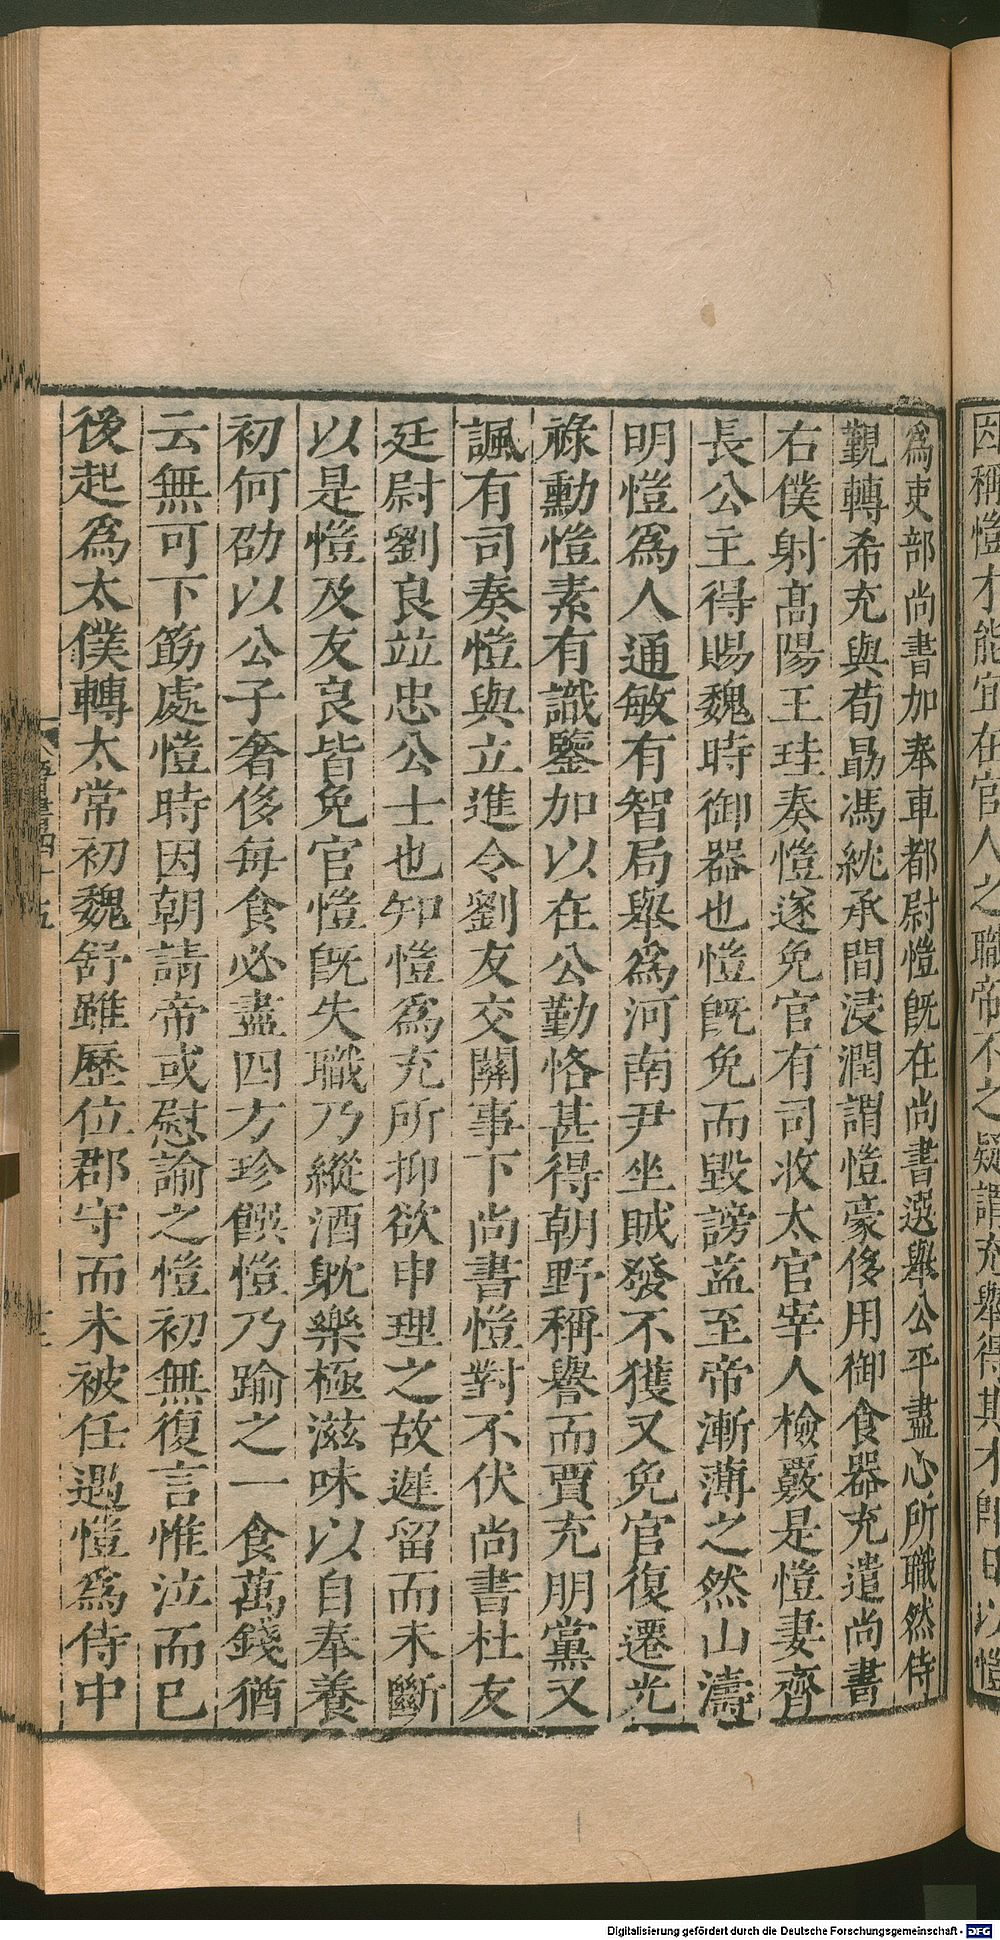 因稱愷才能宜在官人之職帝不之疑謂充舉得其才即日以愷
爲吏部尚書加奉車都尉愷旣在尚書選舉公平盡心所職然侍
覲轉希充與荀勗馮紞承間浸潤謂愷豪侈用御食器充遣尚書
右僕射高陽王珪奏愷遂免官有司收太官宰人檢覈是愷妻齊
長公主得賜魏時御器也愷旣免而毀謗益至帝漸薄之然山濤
明愷爲人通敏有智局舉爲河南尹坐賊發不獲又免官復遷光
祿勳愷素有識鑒加以在公勤恪甚得朝野稱譽而賈充朋黨又
諷有司奏愷與立進令劉友交關事下尚書愷對不伏尚書杜友
廷尉劉良竝忠公士也知愷爲充所抑欲申理之故遲留而未斷
以是愷及友良皆免官愷旣失職乃縱酒耽樂極滋味以自奉養
初何劭以公子奢侈每食必盡四方珍饌愷乃踰之一食萬錢猶
云無可下筯處愷時因朝請帝或慰諭之愷初無復言惟泣而已
後起爲太僕轉太常初魏舒雖歷位郡守而未被任遇愷爲侍中
晉書四十五
Digitalisierung gefördert durch die Deutsche Forschungsgemeinschaft - DFG